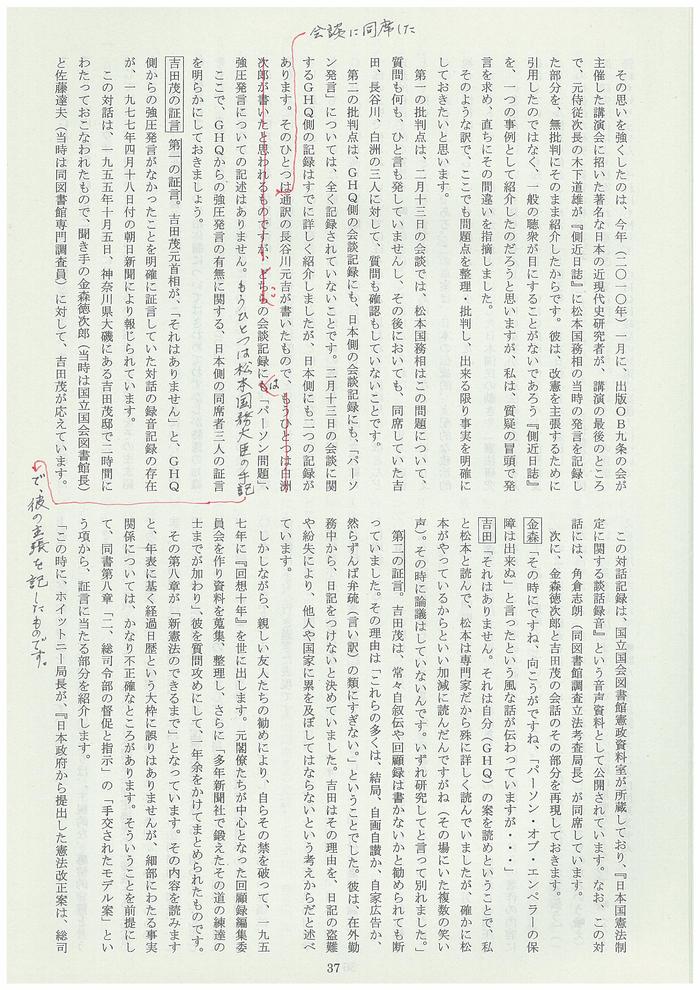 会談に同席した
その思いを強くしたのは、今年（二〇一〇年）一月に、出版OB九条の会が
主催した講演会に招いた著名な日本の近現代史研究者が、講演の最後のところ
で、元侍従次長の木下道雄が『側近日誌』に松本国務相の当時の発言を記録し
た部分を、無批判にそのまま紹介したからです。彼は、改憲を主張するために
引用したのではなく、一般の聴衆が目にすることがないであろう『側近日誌』
を、一つの事例として紹介したのだろうと思いますが、私は、質疑の冒頭で発
言を求め、直ちにその間違いを指摘しました。
そのような訳で、ここでも問題点を整理・批判し、出来る限り事実を明確に
しておきたいと思います。
第一の批判点は、二月十三日の会談では、松本国務相はこの問題について、
質問も何も、ひと言も発していませんし、その後においても、同席していた吉
田、長谷川、白洲の三人に対して、質問も確認もしていないことです。
第二の批判点は、GHQ側の会談記録にも、日本側の会談記録にも、「パーソ
ン発言」については、全く記録されていないことです。二月十三日の会談に関
するGHQ側の記録はすでに詳しく紹介しましたが、日本側にも二つの記録が
あります。そのひとつは通訳の長谷川元吉が書いたもので、もうひとつは白洲
次郎が書いたと思われるものですが、どちらの会談記録にも「パーソン問題」、
どは
強圧発言についての記述はありません。もうひとつは松本国務大臣の手記
で彼の主張を記したものです。
ここで、GHQからの強圧発言の有無に関する、日本側の同席者三人の証言
を明らかにしておきましょう。
吉田茂の証言 第一の証言。吉田茂元首相が、「それはありません」と、GHQ
側からの強圧発言がなかったことを明確に証言していた対話の録音記録の存在
が、一九七七年四月十八日付の朝日新聞により報じられています。
この対話は、一九五五年十月五日、神奈川県大磯にある吉田茂邸で二時間に
わたっておこなわれたもので、聞き手の金森徳次郎（当時は国立国会図書館長）
と佐藤達夫（当時は同図書館専門調査員）に対して、吉田茂が応えています。
この対話記録は、国立国会図書館憲政資料室が所蔵しており、『日本国憲法制
定に関する談話録音』という音声資料として公開されています。なお、この対
話には、角倉志朗（同図書館調査立法考査局長）が同席しています。
次に、金森徳次郎と吉田茂の会話のその部分を再現しておきます。
金森「その時にですね、向こうがですね、「パーソン・オブ・エンペラー」の保
障は出来ぬ」と言ったという風な話が伝わっていますが・・・」
吉田「それはありません。それは自分（GHQ）の案を読めということで、私
と松本と読んで、松本は専門家だから殊に詳しく読んでいましたが、確かに松
本がやっているからといい加減に読んだんですがね（その場にいた複数の笑い
声）。その時に論議はしていないんです。いずれ研究してと言って別れました。」
第二の証言。吉田茂は、常々自叙伝や回顧録は書かないかと勧められても断
っていました。その理由は「これらの多くは、結局、自画自讃か、自家広告か、
然らずんば弁疏（言い訳）の類にすぎない。」ということでした。彼は、在外勤
務中から、日記をつけないと決めていました。吉田はその理由を、日記の盗難
や紛失により、他人や国家に累を及ぼしてはならないという考えからだと述べ
ています。
しかしながら、親しい友人たちの勧めにより、自らその禁を破って、一九五
七年に『回想十年』を世に出します。元閣僚たちが中心となった回顧録編集委
員会を作り資料を蒐集、整理し、さらに「多年新聞社で鍛えたその道の練達の
士までが加わり」、彼を質問攻めにして、二年余をかけてまとめられたものです。
その第八章が「新憲法のできるまで」となっています。その内容を読みます
と、年表に基く経過日歴という大枠に誤りはありませんが、細部にわたる事実
関係については、かなり不正確なところがあります。そういうことを前提にし
て、同書第八章「二、総司令部の督促と指示」の「手交されたモデル案」とい
う項から、証言に当たる部分を紹介します。
「この時に、ホイットニー局長が、『日本政府から提出した憲法改正案は、総司
37